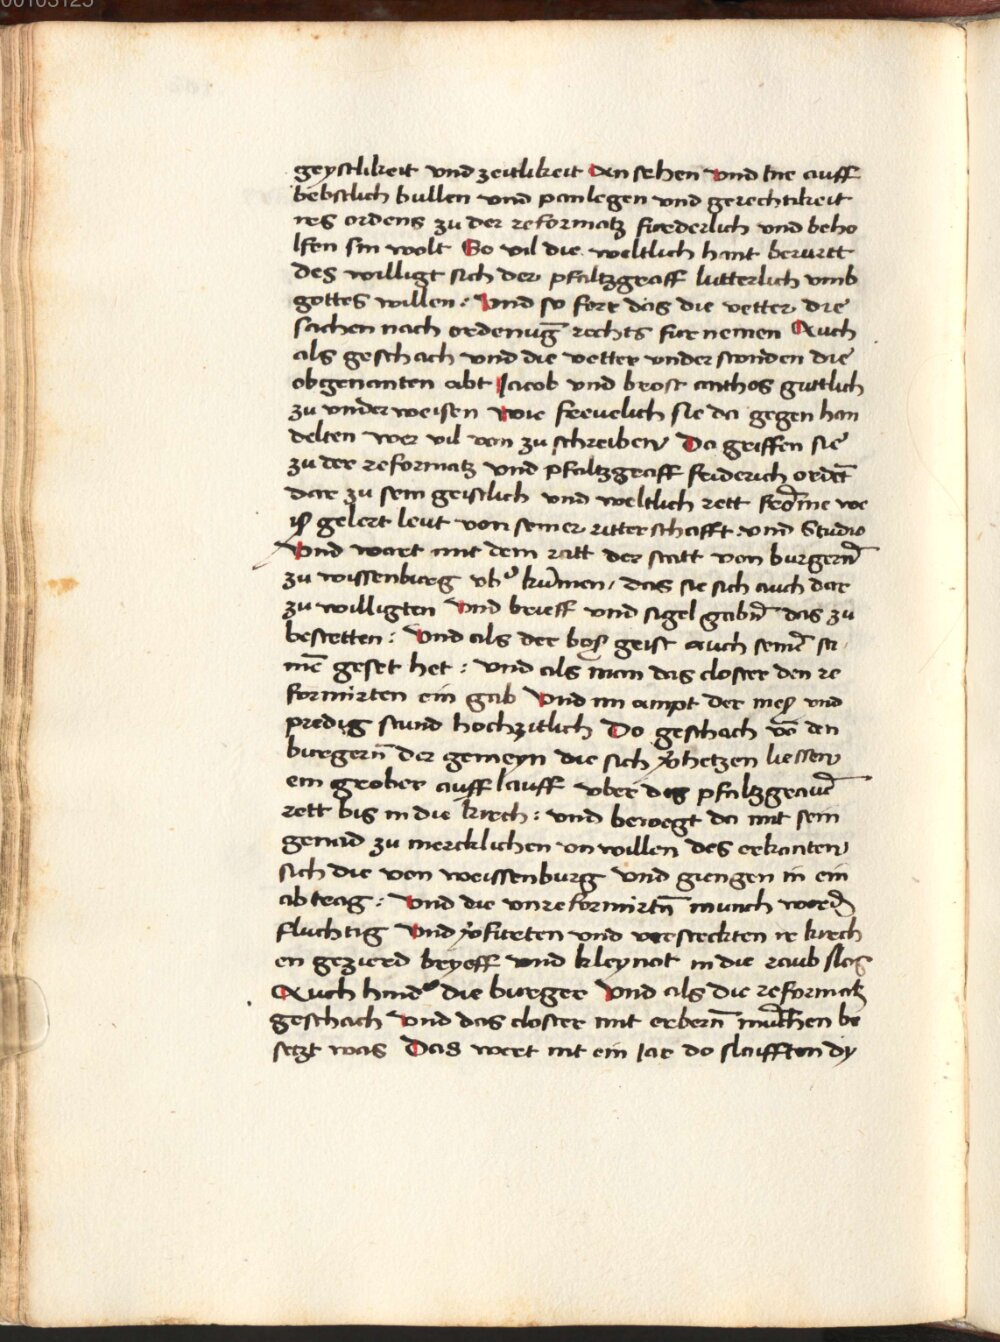 00103125
geystlikeit vnd zeitlikeit An sehen Vnd ine auff
bebstlich bullen vnd penlegen vnd gerechtikeit
irs ordens zu der reformatz furderlich vnd beho
lfen sin wolt So vil die weltlich hant berurtt
des willigt sich der pfaltzgraff lutterlich vmb
gottes willen : Vnd so fere das die vetter die
sachen nach ordenug̅ rechts fur nemen Auch
als geschach vnd die vetter vnder stonden die
obgenanten abt Jacob vnd brost anthos guttlich
zu vnder weisen Wie freuelich sie da gegen han
delten wer vil von zu schreiben Da griffen sie
zu der reformatz vnd pfaltzgraff friderich ordet̅
dar zu sein geistlich vnd weltlich rett we
iß gelert leut von seiner ritterschafft vnd Studio
Vnd wart mit dem ratt der statt von burgern̅
zu wissenburg kumen / das sie sich auch dar
zu willigten Vnd brieff vnd sigel gabn̅ das zu
bestetten : Vnd als der boß geist auch seine̅ sa
me̅ geset het : vnd als man das closter den re
formirten ein gab Vnd im ampt der meß vnd
predig stund hochzitlich Do geschach vo̅ den
burgern̅ der gemeyn die sich v̾hetzen liessen
ein grober auff lauff vber des pfaltzgraue̅
rett bis in die kirch : vnd bewegt da mit sein
genad zu mercklichen vn willen des erkanten
sich die von weissenburg Vnd giengen in ein
abtrag : Vnd die vnreformirtn̅ munch worde̅
fluchtig Vnd v̾furten vnd versteckten ir kirch
en gezierd bryeff vnd kleynot in die raub slos
Auch hind᷒ die burger Vnd als die reformatz
geschach Vnd das closter mit erbern̅ mu̅chen be
setzt was Das wert nit ein Jar do slaifften dy